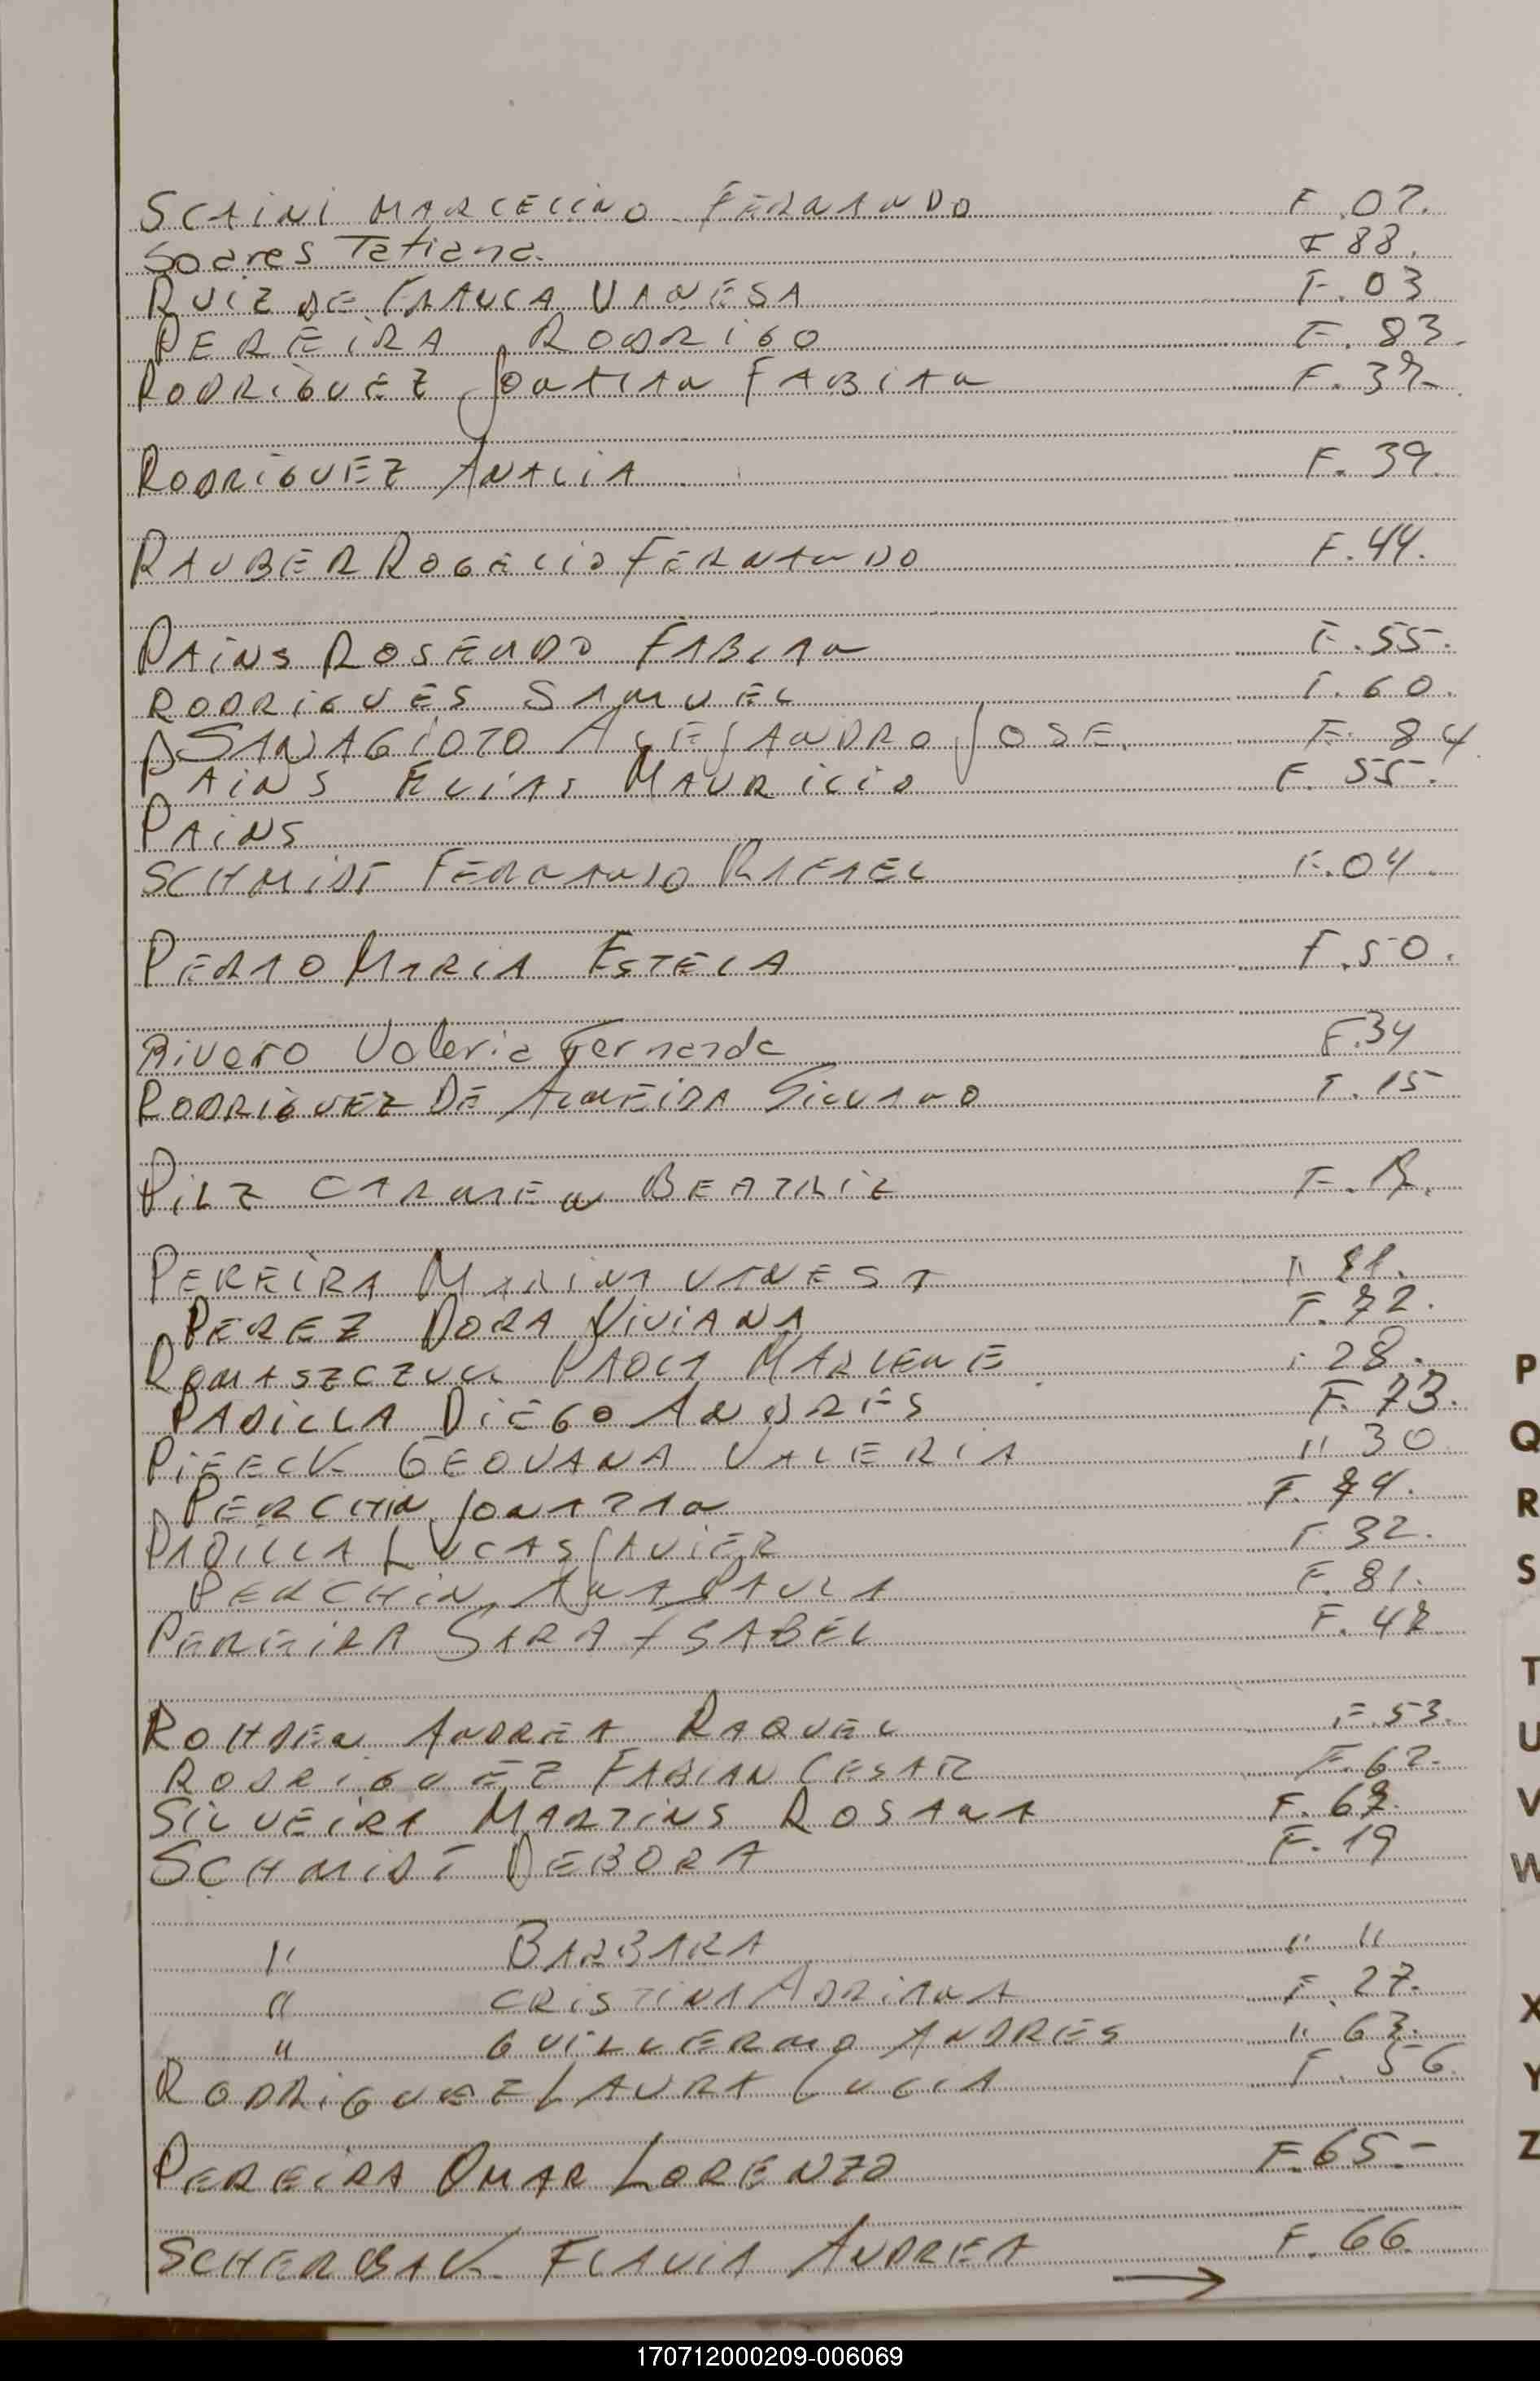 SCAINI MARCELINO FERNANDO F.07.
Soares Tatiana. F 88.
RUIZ DE FRANCA VANESA F. 03
PEREIRA RODRIGO F. 83.
RODRIGUEZ JONATAN FABIAN F. 37.
RODRIGUEZ ANALIA F. 39.
RAUBER ROGELIO FERNANDO F. 44.
PAINS ROSENDO FABIAN F. 55.
RODRIGUES SAMUEL F. 60.
SANAGIOTO ALEJANDRO JOSE. F. 84
PAINS ELIAS MAURICIO F. 55.
PAINS
SCHMIDT FERNANDO RAFAEL F. 04.
MARIA ESTELA F. 50.
Rivero Valeria Fernanda F. 34
RODRIGUEZ DE ALMEIDA SILVANO F. 15
PILZ CARMEN BEATRIZ F.
PEREIRA MARINA VANESA "
PEREZ DORA VIVIANA F. 72.
ROMASZCZUK PAOLA MARLENE 28.
PADILLA DIEGO ANDRES F. 73.
PIEECK GEOVANA VALERIA " 30
PERCHIN JONATAN F. 74.
PADILLA LUCAS JAVIER F. 32.
PERCHIN ANA PAULA F. 81.
PEREIRA SARA ISABEL F.
ROHDEN ANDREA RAQUEL F. 53.
RODRIGUEZ FABIAN CESAR F. 62.
SILVEIRA MARTINS ROSANA F.
SCHMIDT DEBORA F. 19
" BARBARA " "
" CRISTINA ADRIANA F. 27.
" GUILLERMO ANDRES " 63.
RODRIGUEZ LAURA LUCIA F. 56.
PEREIRA OMAR LORENZO F. 65.-
SCHERBAK FLAVIA ANDREA F. 66.
→
P
Q
R
S
T
U
V
W
X
Y
Z
170712000209-006069